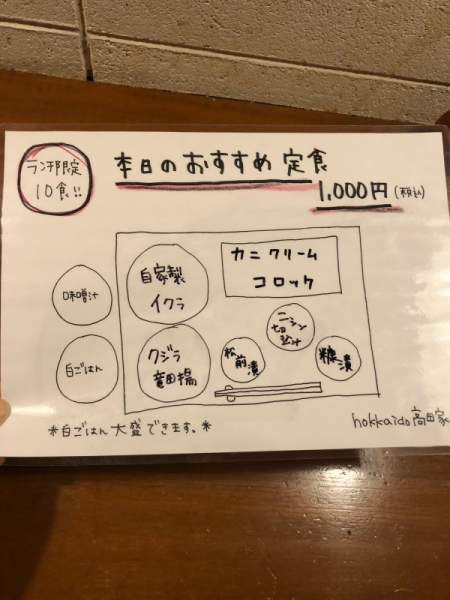 ランチ限定
10食!!
本日のおすすめ定食
1,000円(税込)
自家製
イクラ
カニクリーム
コロッケ
味噌汁
白ごはん
クジラ
竜田揚
松前漬
ニシン
切込み
糠漬
*白ごはん大盛できます。*
hokkaido高田家